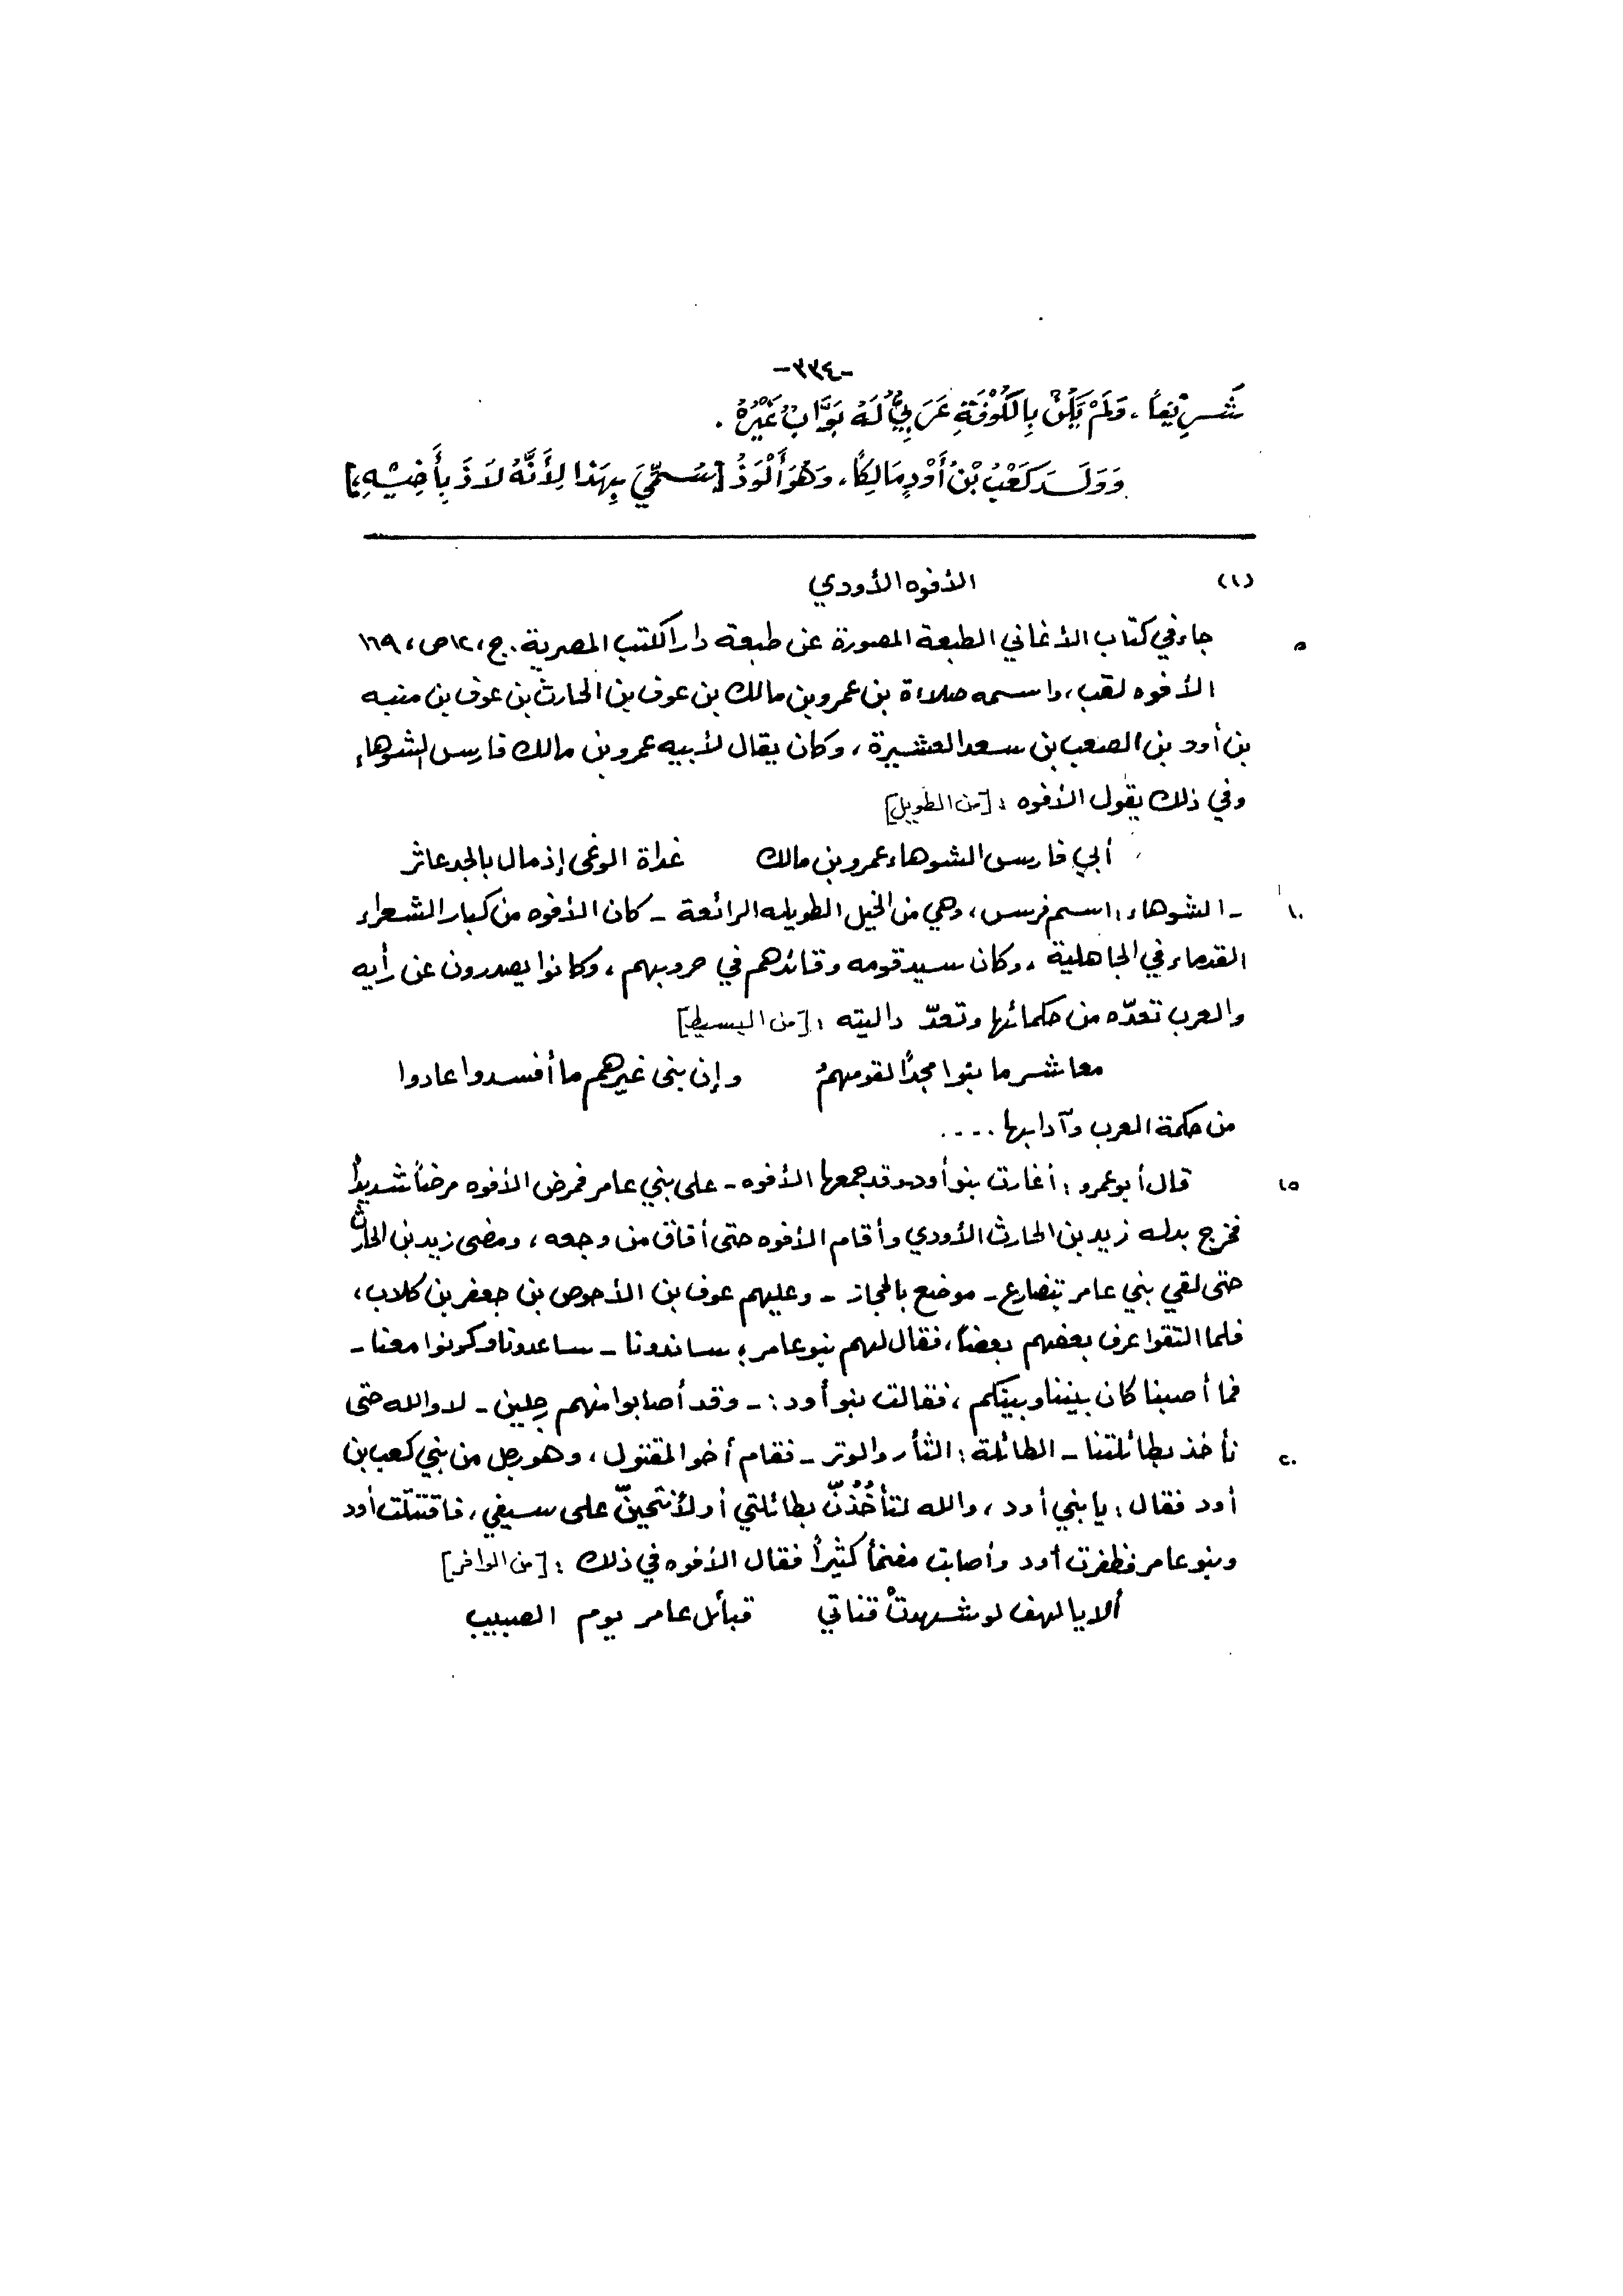 -٣٣٤-
شَرِيْفاً، وَلَمْ يَكُنْ بِالْكُوْفَةِ عَرَبِيٌّ لَهُ بَوَّابٌ غَيْرُهُ.
وَوَلَدَ كَعْبُ بْنُ أَوْدٍ مَالِكاً، وَهُوَ أَلْوَذُ [سُمِّيَ بِهَذا لِأَنَّهُ لاَذَ بِأَخِيْهِ،]
(١) الأفوه الأودي
٥ جاء في كتاب الأغاني الطبعة المصورة عن طبعة دار الكتب المصرية. ج، ١٢ ص، ١٦٩
الأفوه لقب، واسمه صلاءة بن عمرو بن مالك بن عوف بن الحارث بن عوف بن منبه
بن أود بن الصعب بن سعد العشيرة، وكان يقال لأبيه عمرو بن مالك فارس الشوهاء
وفي ذلك يقول الأفوه: [من الطويل]
أبي فارس الشوهاء عمرو بن مالك غداة الوغى إذ مال بالجد عاثر
١٠ - الشوهاء: اسم فرس، وهي من الخيل الطويله الرائعة - كان الأفوه من كبار الشعراء
القدماء في الجاهلية، وكان سيد قومه وقائدهم في حروبهم، وكانوا يصدرون عن رأيه
والعرب تعدّه من حكمائها وتعدّ داليته: [من البسيط]
معاشر ما بنوا مجداً لقومهمُ وإن بنى غيرهم ما أفسدوا عادوا
من حكمة العرب وآدابها ....
١٥ قال أبو عمرو: أغارت بنو أود وقد جمعها الأفوه - على بني عامر فمرض الأفوه مرضاً شديداً
فخرج بدله زيد بن الحارث الأودي وأقام الأفوه حتى أفاق من وجعه، ومضى زيد بن الحارث
حتى لقي بني عامر بتضارع - موضع بالحجاز - وعليهم عوف بن الأحوص بن جعفر بن كلاب،
فلما التقوا عرف بعضهم بعضاً، فقال لهم بنو عامر: ساندونا - ساعدونا وكونوا معنا -
فما أصبنا كان بيننا وبينكم، فقالت بنو أود: - وقد أصابوا منهم رجلين - لا والله حتى
٢٠ نأخذ بطائلتنا - الطائلة: الثأر والوتر - فقام أخو المقتول، وهو رجل من بني كعب بن
أود فقال: يا بني أود، والله لتأخُذُنّ بطائلتي أو لأنتحينّ على سيفي، فاقتتلت أود
وبنو عامر فظفرت أود وأصابت مغنماً كثيراً فقال الأفوه في ذلك: [من الوافر]
ألا يا لهف لو شهدتْ قناتي قبائل عامر يوم الصبيب